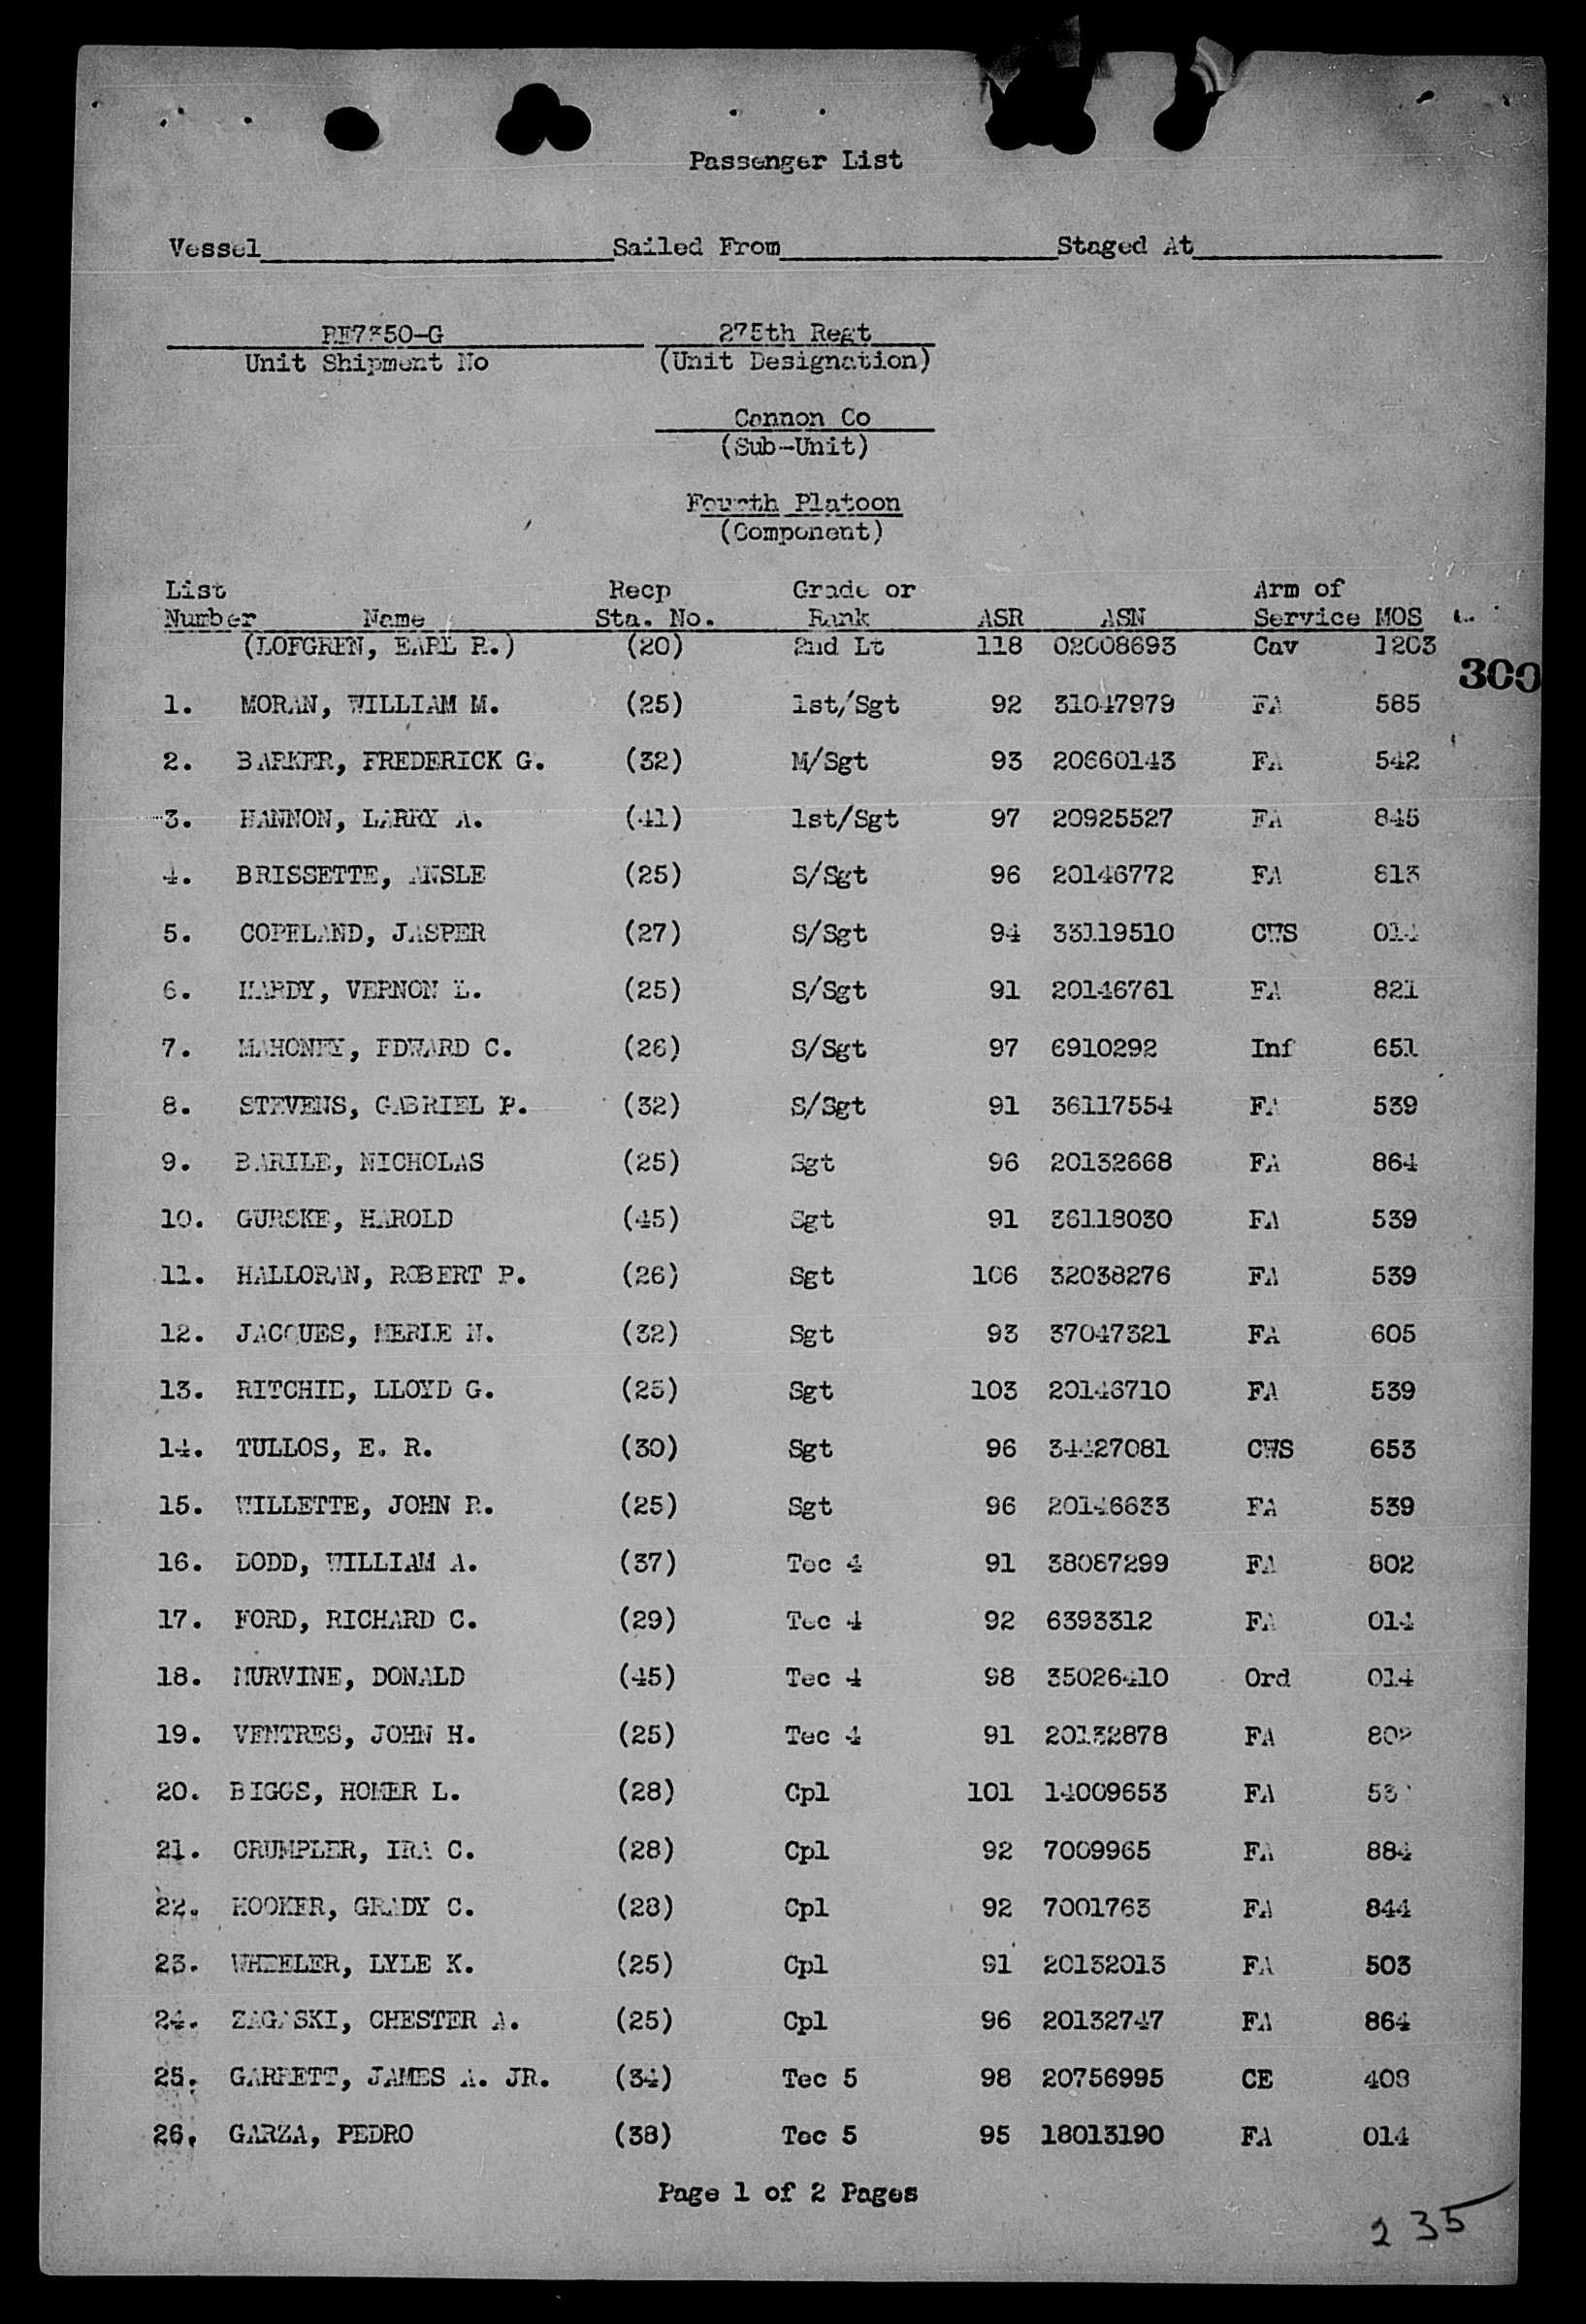 Passenger List
Vessel Sailed From Staged At
RE7350-G 275th Regt
Unit Shipment No (Unit Designation)
Cannon Co
(Sub-Unit)
Fourth Platoon
(Component)
List Recp Grade or Arm of
Number Name Sta. No. Rank ASR ASN Service MOS
(LOFGREN, EARL R.) (20) 2nd Lt 118 02008693 Cav 1203
300
1. MORAN, WILLIAM M. (25) 1st/Sgt 92 31047979 FA 585
2. BARKER, FREDERICK G. (32) M/Sgt 93 20660143 FA 542
3. HANNON, LARRY A. (41) 1st/Sgt 97 20925527 FA 845
4. BRISSETTE, ANSLE (25) S/Sgt 96 20146772 FA 813
5. COPELAND, JASPER (27) S/Sgt 94 33119510 CWS 014
6. HARDY, VERNON L. (25) S/Sgt 91 20146761 FA 821
7. MAHONEY, EDWARD C. (26) S/Sgt 97 6910292 Inf 651
8. STEVENS, GABRIEL P. (32) S/Sgt 91 36117554 FA 539
9. BARILE, NICHOLAS (25) Sgt 96 20132668 FA 864
10. GURSKE, HAROLD (45) Sgt 91 36118030 FA 539
11. HALLORAN, ROBERT P. (26) Sgt 106 32038276 FA 539
12. JACQUES, MERLE N. (32) Sgt 93 37047321 FA 605
13. RITCHIE, LLOYD G. (25) Sgt 103 20146710 FA 539
14. TULLOS, E. R. (30) Sgt 96 34427081 CWS 653
15. WILLETTE, JOHN R. (25) Sgt 96 20146633 FA 539
16. DODD, WILLIAM A. (37) Tec 4 91 38087299 FA 802
17. FORD, RICHARD C. (29) Tec 4 92 6393312 FA 014
18. MURVINE, DONALD (45) Tec 4 98 35026410 Ord 014
19. VENTRES, JOHN H. (25) Tec 4 91 20132878 FA 802
20. BIGGS, HOMER L. (28) Cpl 101 14009653 FA
21. CRUMPLER, IRA C. (28) Cpl 92 7009965 FA 884
22. HOOKER, GRADY C. (28) Cpl 92 7001763 FA 844
23. WHEELER, LYLE K. (25) Cpl 91 20132013 FA 503
24. ZAGASKI, CHESTER A. (25) Cpl 96 20132747 FA 864
25. GARRETT, JAMES A. JR. (34) Tec 5 98 20756995 CE 408
26. GARZA, PEDRO (38) Tec 5 95 18013190 FA 014
Page 1 of 2 Pages
235